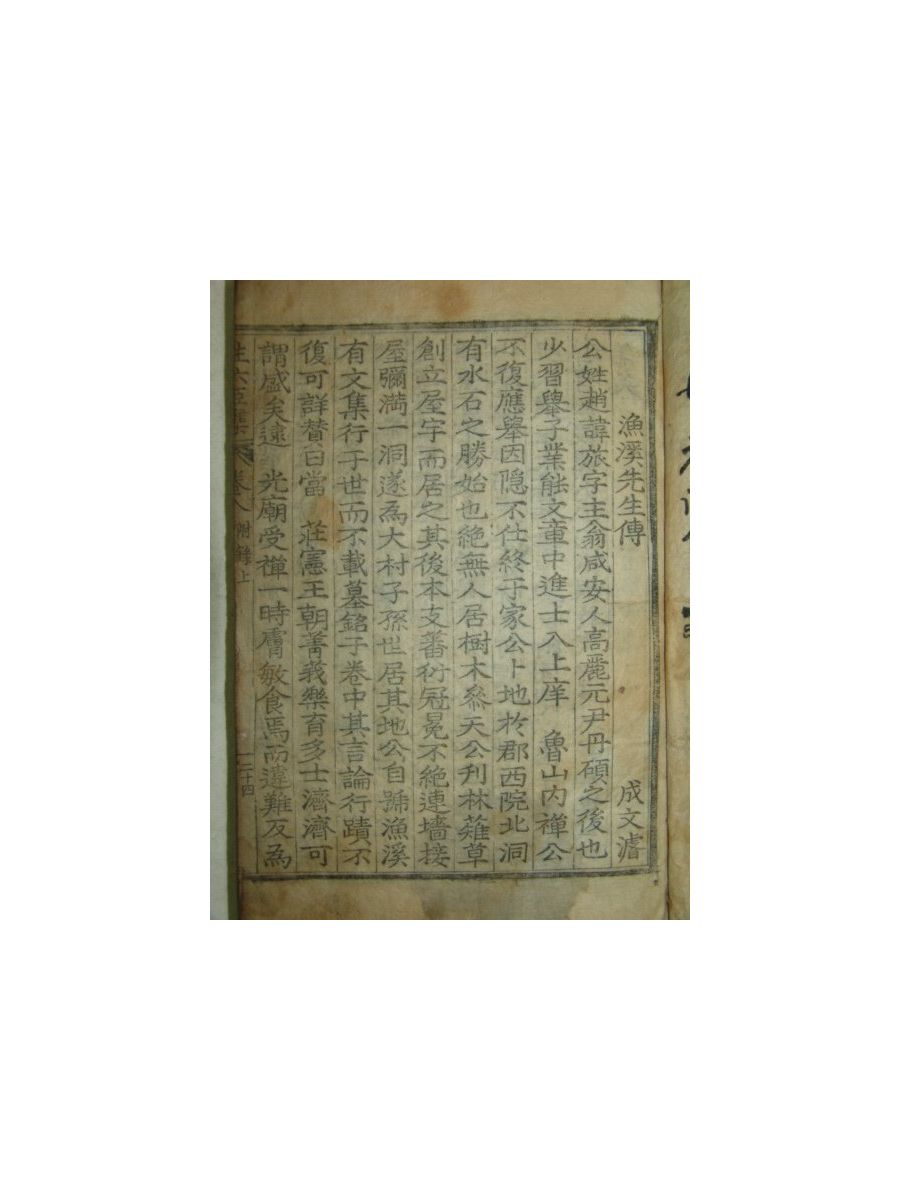 漁溪先生傳 成文濬
公姓趙諱旅字主翁咸安人高麗元尹丹碩之後也
少習舉子業能文章中進士入上庠 魯山內禪公
不復應舉因隱不仕終于家公卜地於郡西院北洞
有水石之勝始也絶無人居樹木叅天公刋林薙草
創立屋宇而居之其後本支蕃衍冠冕不絶連墻接
屋彌滿一洞遂為大村子孫世居其地公自號漁溪
有文集行于世而不載墓銘于卷中其言論行蹟不
復可詳替曰當 莊憲王朝菁莪樂育多士濟濟可
謂盛矣逮 光廟受禪一時膚敏食焉而違難反為
生六臣 卷八 附錄上 二十四